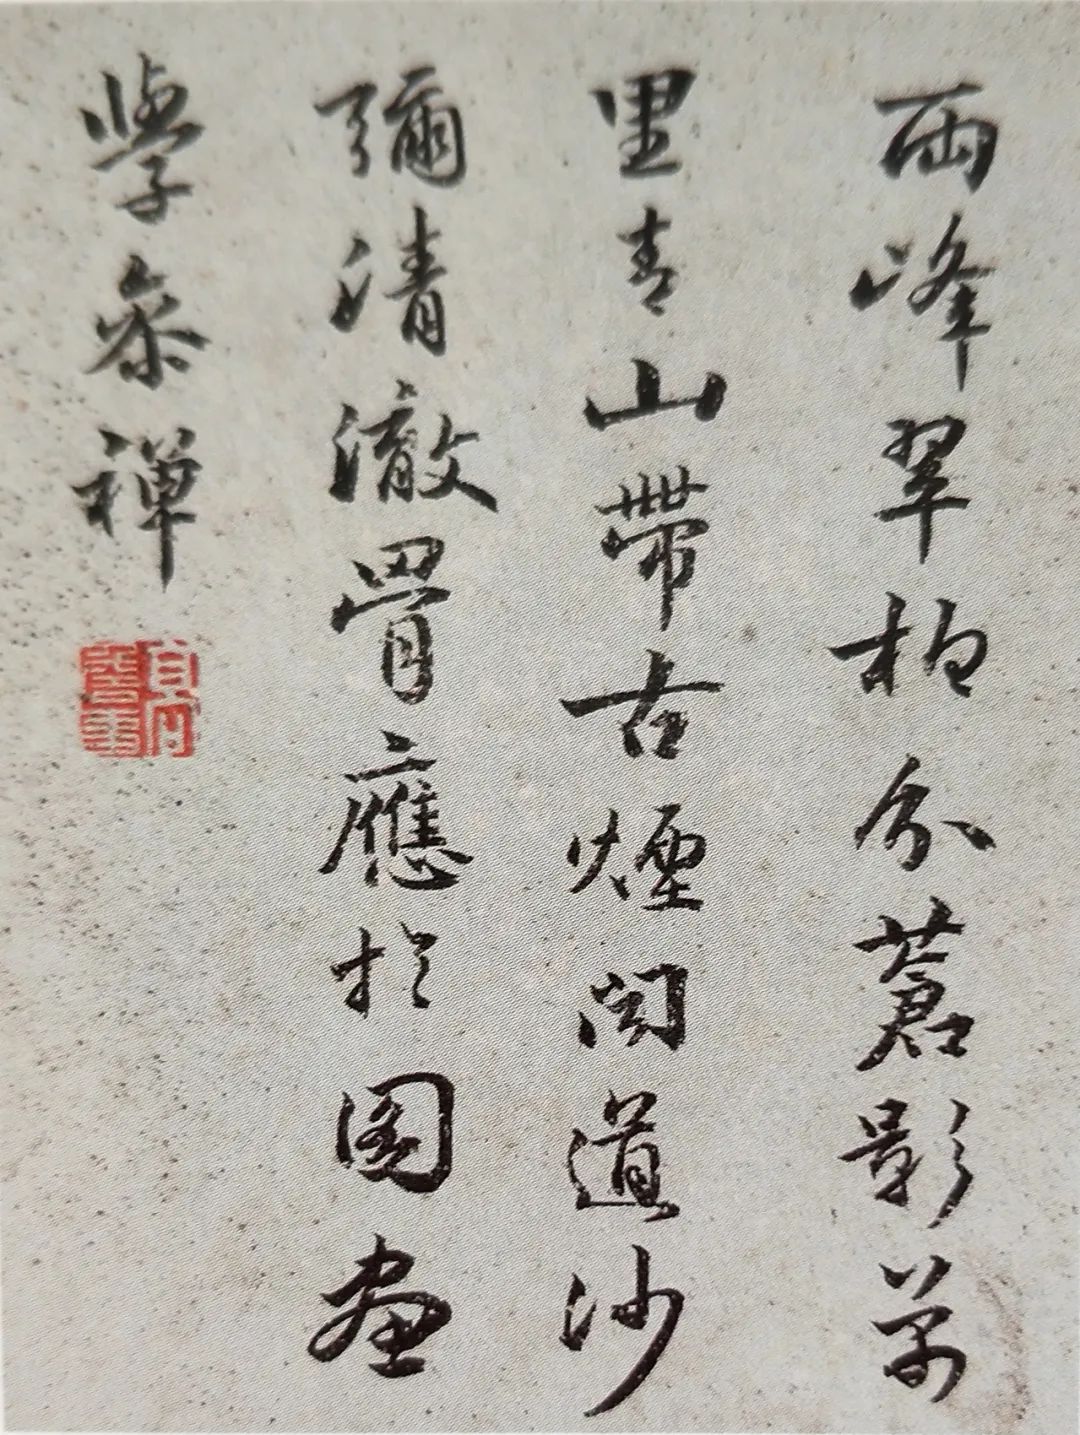 兩峰翠柏分蒼影萬
里青山帶古煙聞道沙
彌清澈骨應於圖畫
學參禪